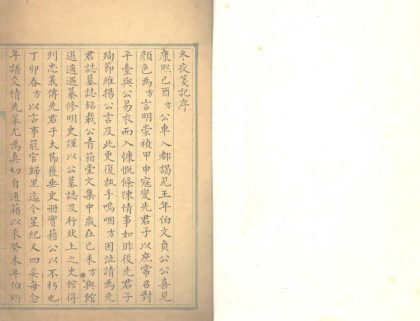 冬夜箋記序
康熙己酉方公車入都謁見王年伯文貞公公喜見
顏色為方言明崇禎甲申寇變先君子以庶常召對
平臺與公易衣而入慷慨條陳情事如昨後先君子
殉節維揚公言及此更復執手嗚咽方因泣請為先
君誌墓誌銘載公青箱堂文集中歲在己未方與館
選適遇纂修明史謹以公墓誌及行狀上之史館得
列忠義傳先君子大節獲垂史冊實藉公以不朽也
丁卯春方以言事罷官歸里迄今星紀又四矣每念
年譜交情先單尤為真切自通籍以來癸未年伯所